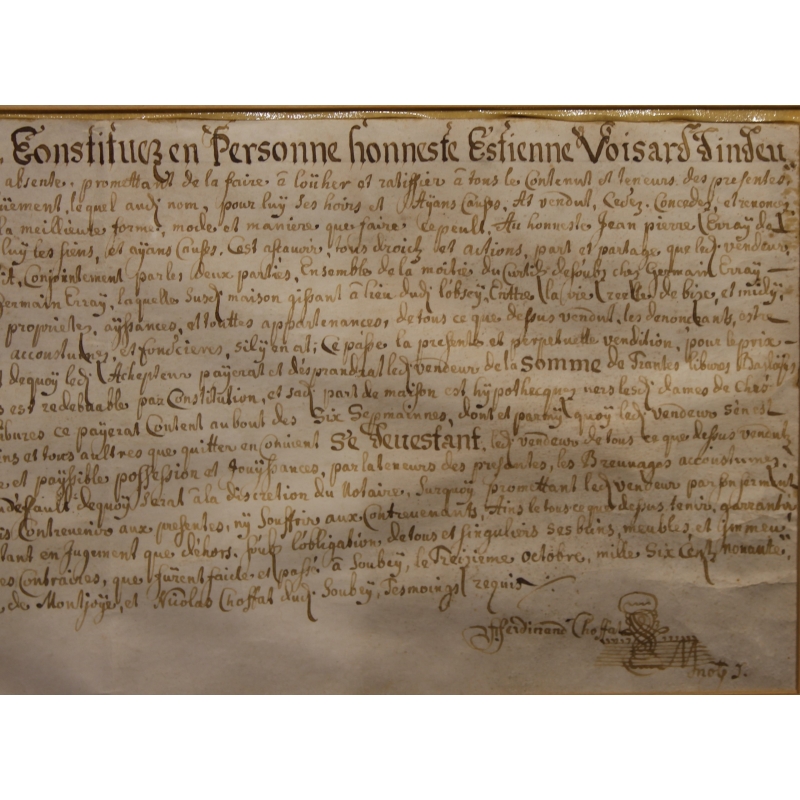 Constituez en Personne honneste Estienne Voisard dindeu
absente, promettant de la faire â loüher et ratiffier â tous le Contenut et teneurs des presentes,
üement, lequel audj nom, pour luy ses hoirs et Ayans Causes, At vendut, Cedez, Concedez, et renonc
la meillieure forme, mode et maniere que faire Ce peult, Au honneste Jean pierre Erray de
luy les siens, et ayans Causes, C'est ascauoir, tous droictz et actions, part et partage que ledj vendeur,
it, Conjointement par les deux parties, Ensemble de la moitié du Curtil desoubz chez Germain Erray
Germain Erray, laquelle Susdj maison gissant â lieu dudj lobsey, Entre la vie reelle de bize, et midy,
proprietes, ayssances, et touttes appartenances, de tous ce que dessus vendut, les denoncants, estre
accoustumes, et fonscieres, s'il y en at; Ce passe la presente et perpetuelle vendition, pour le prix
dequoy ledj Achepteur payerat et desprandrat ledj vendeur de la Somme de Trantes libvres Basloys
s est redebuable par Constitution, et sadj part de maison est hypothecquez vers lesdj dames de
bures ce payerat Content au bout des Six Sepmainnes, dont et parmy quoy ledj vendeur s'en est
ins et tous aultres que quitter en Conuient Se deuestant, ledj vendeur de tous ce que dessus vendutz
e et payssible possession et Jouyssances, par la teneurs des presentes, les Breuuages accoustumes.
deffault dequoy serat â la discretion du Notaire, Surquoy promettant ledj vendeur par son serment
is Contrevenir aux presentes, ny Souffrir aux Contrevenants, Ains le tous ce que dessus tenir, garantir
tant en Jugement que dehors. Soubz l'obligation de tous et singuliers ses biens, meubles, et immeu
es Contraires, que furent faicte et passé â Soubey, le Treizieme octobre, mille Six Centz nonante,
de Montjoye, et Nicolas Choffat dudj Soubey, Tesmoings requis
Ferdinand Choffat
Notj.